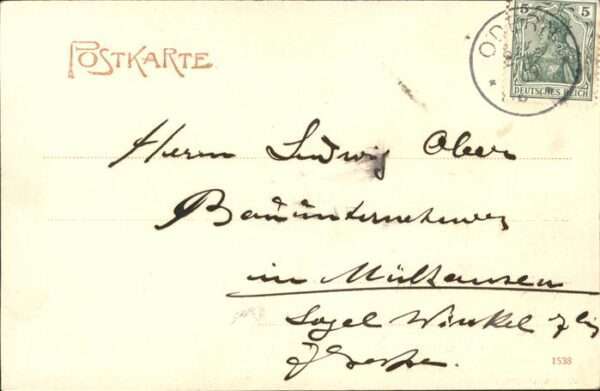 5 5
DEUTSCHES REICH
POSTKARTE
Herrn Ludwig Ober
Bauunternehmer
in Mülhausen
Vogel Winkel
1538